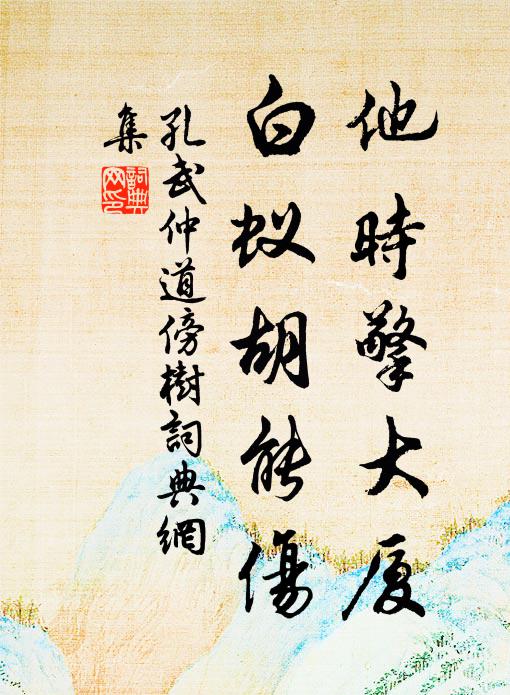 他時擎大厦
白蚁胡能傷
孔武仲道傍樹詞典網
集
詞典
网印